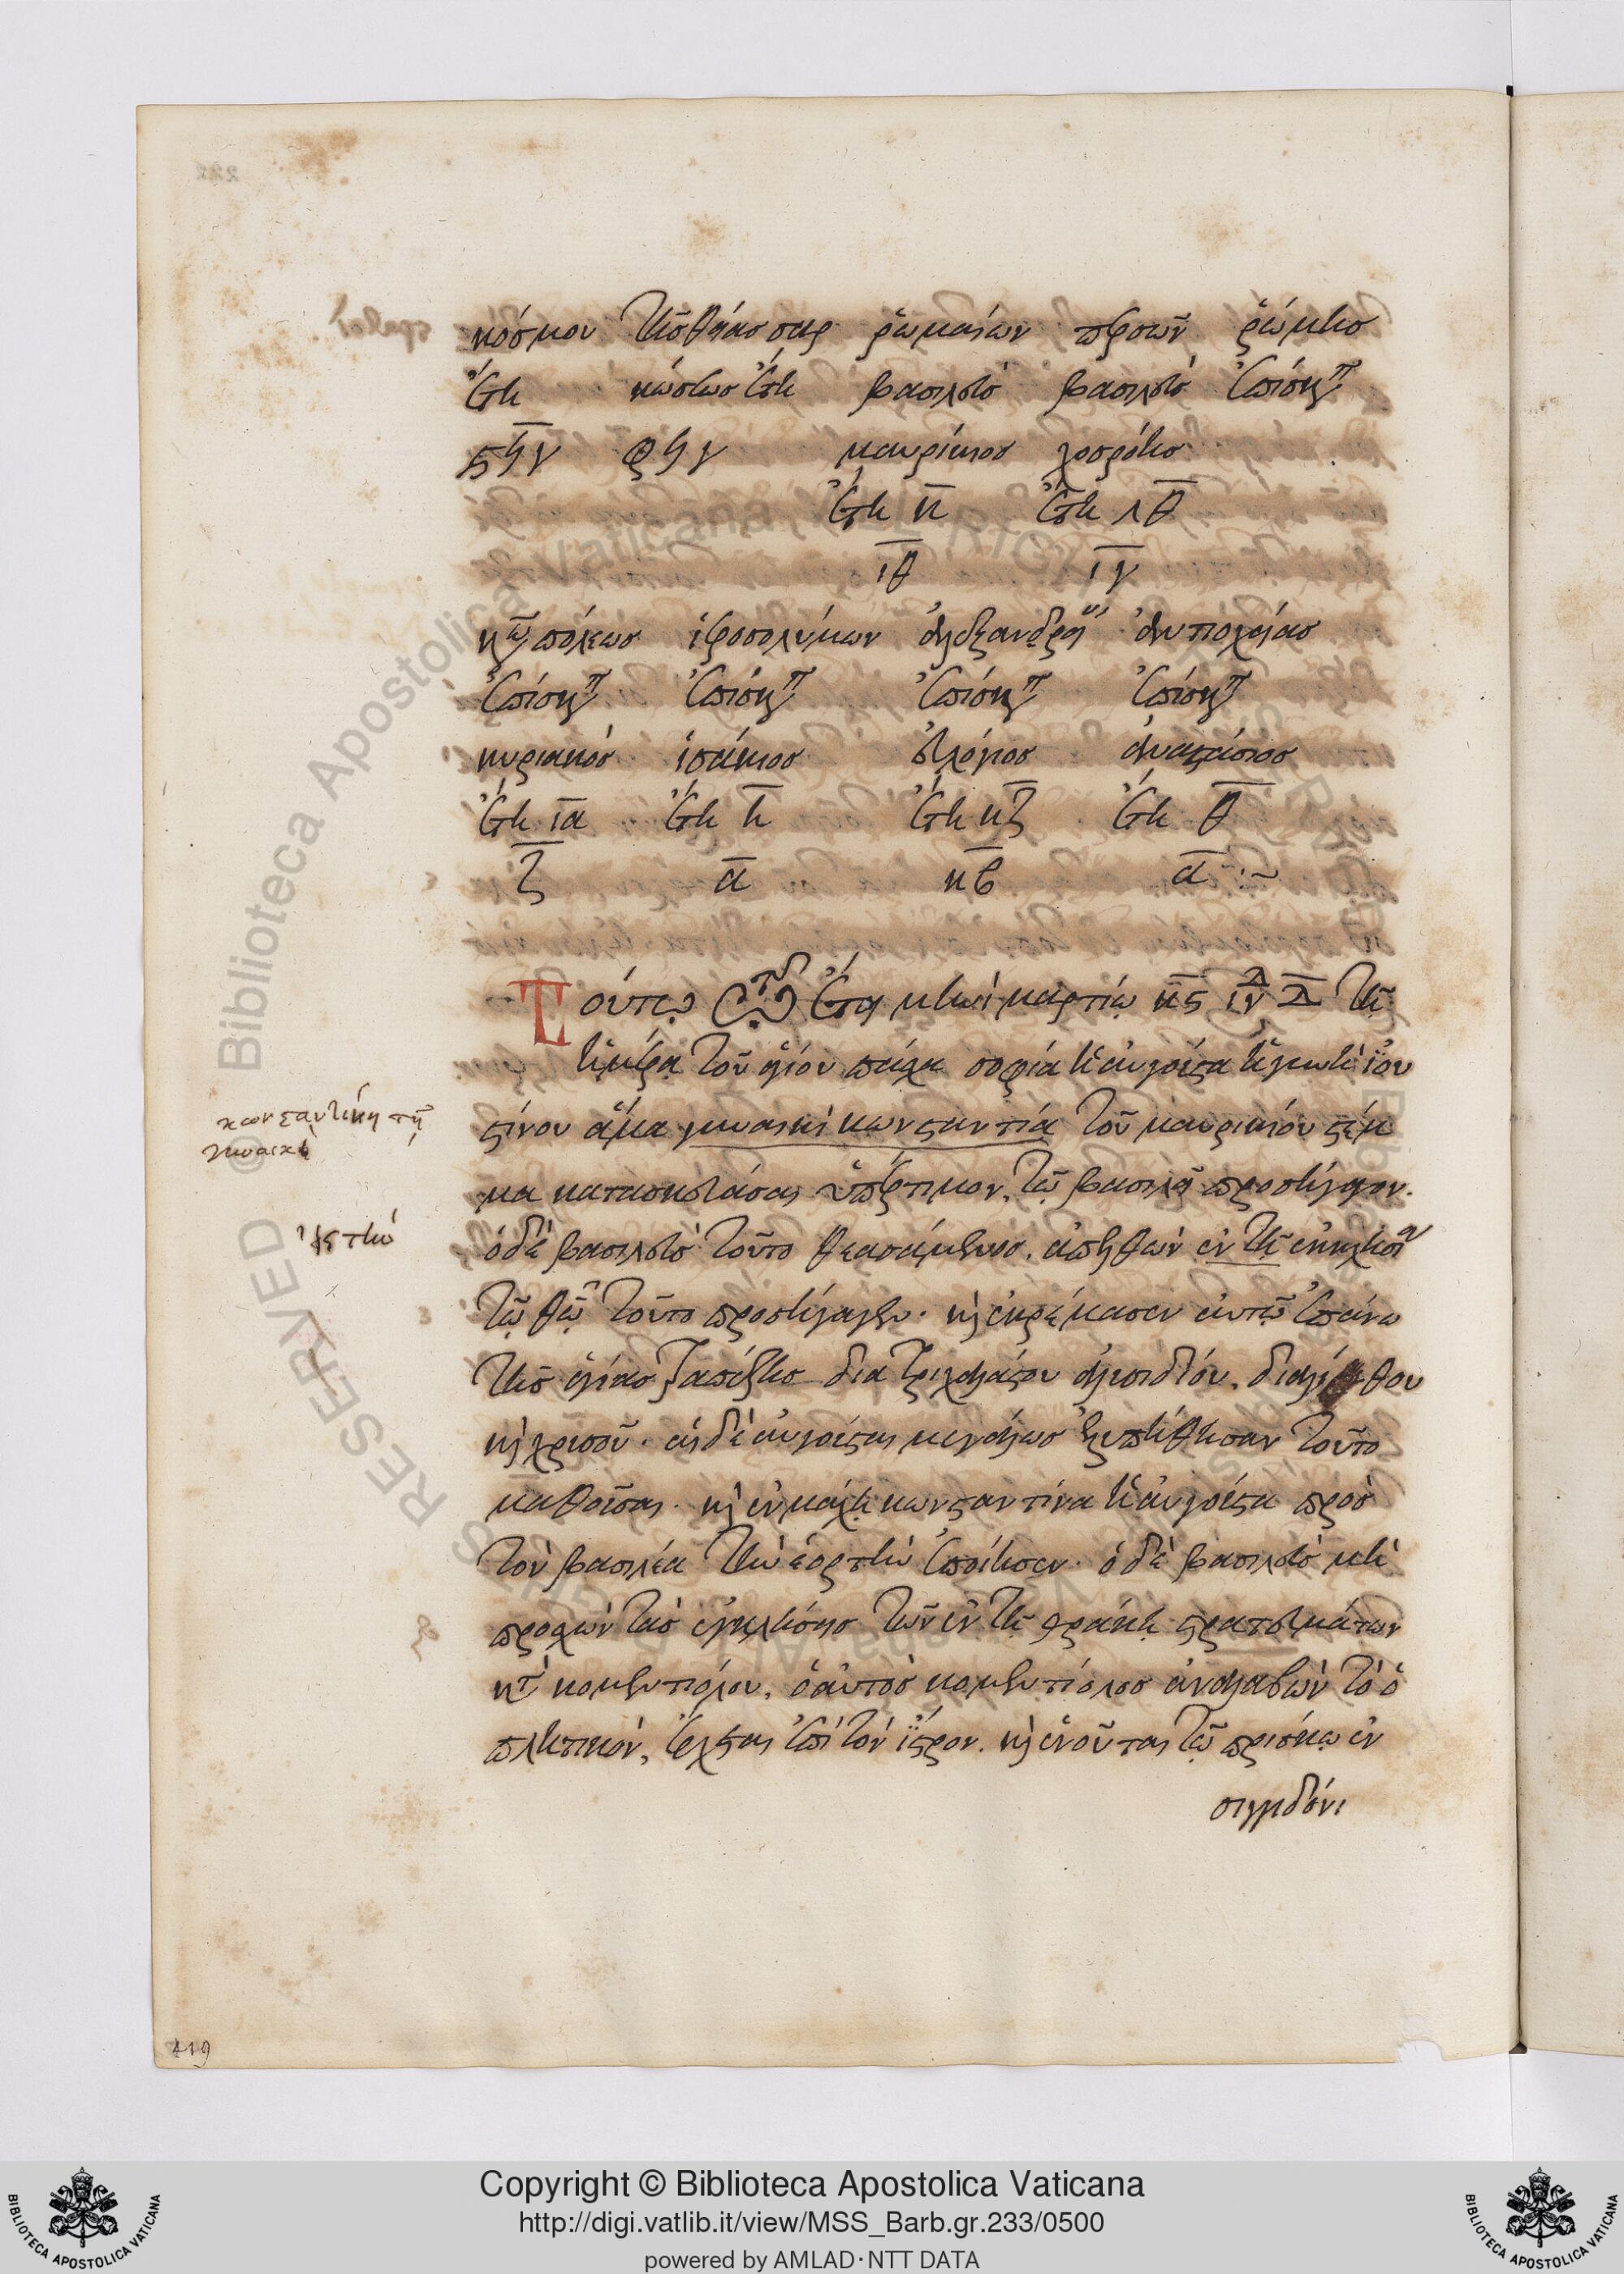 κόσμου τῆς θείας σαρ ῥωμαίων περσῶν ῥώμης
ἔτη κώσεως ἔτη βασιλεὺς βασιλεὺς ἐπίσκοπ
ϛϟγ φϟγ μαυρίκιος χοσρόης
ἔτη κ ἔτη λθ
ιθ ιγ
κων πόλεως ἱεροσολύμων ἀλεξανδρεί ἀντιοχείας
ἐπίσκοπ ἐπίσκοπ ἐπίσκοπ ἐπίσκοπ
κυριακὸς ἰσάκιος εὐλόγιος ἀναστάσιος
ἔτη ια ἔτη η ἔτη κζ ἔτη θ
ζ α κβ α
Τούτῳ τῷ ἔτει μηνὶ μαρτίῳ κϛ ἰνδ δ τῇ
ἡμέρᾳ τοῦ ἁγίου πάσχα σοφία ἡ αὐγούστα ἡ γυνὴ ἰου
στίνου ἅμα γυναικὶ κωνσταντίᾳ τοῦ μαυρικίου στέμ
μα κατασκευάσασαι ὑπέρτιμον, τῷ βασιλεῖ προσήγαγον.
ὁ δὲ βασιλεὺς τοῦτο θεασάμενος, ἀπελθὼν ἐν τῇ ἐκκλησίᾳ
τῷ θεῷ τοῦτο προσήγαγεν. καὶ ἐκρέμασεν αὐτῷ ἐπάνω
τῆς ἁγίας τραπέζης διὰ τριχαλύσου ἁλυσιδίου, διαλίθου
καὶ χρυσοῦ. αἱ δὲ αὐγοῦσται μεγάλως ἐλυπήθησαν τοῦτο
μαθοῦσαι. καὶ ἐν μάχῃ κωνσταντίνα ἡ αὐγούστα πρὸς
τὸν βασιλέα τὴν ἑορτὴν ἐποίησεν. ὁ δὲ βασιλεὺς μὴ
προσχὼν ταῖς ἐγκλήσεσι τῶν ἐν τῇ θρᾴκῃ στρατευμάτων
κατὰ κομεντιόλου, ὁ αὐτὸς κομεντίολος ἀναλαβὼν τὸ ὁ
πλητικὸν, ἔρχεται ἐπὶ τὸν ἴστρον. καὶ ἑνοῦται τῷ πρίσκῳ ἐν
σιγγιδόνι
κωνσταντίνῃ τῇ
γυναικὶ
εἰς τὴν
419
RESERVED © Biblioteca Apostolica Vaticana
Copyright © Biblioteca Apostolica Vaticana
http://digi.vatlib.it/view/MSS_Barb.gr.233/0500
powered by AMLAD·NTT DATA
BIBLIOTECA APOSTOLICA VATICANA
BIBLIOTECA APOSTOLICA VATICANA